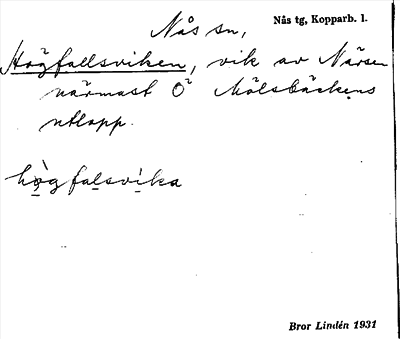 Nås sn,
Nås tg, Kopparb. l.
Högfallsviken, vik av Närsen
närmast Ö Mölsbäckens
utlopp.
hògfalsvika
Bror Lindén 1931